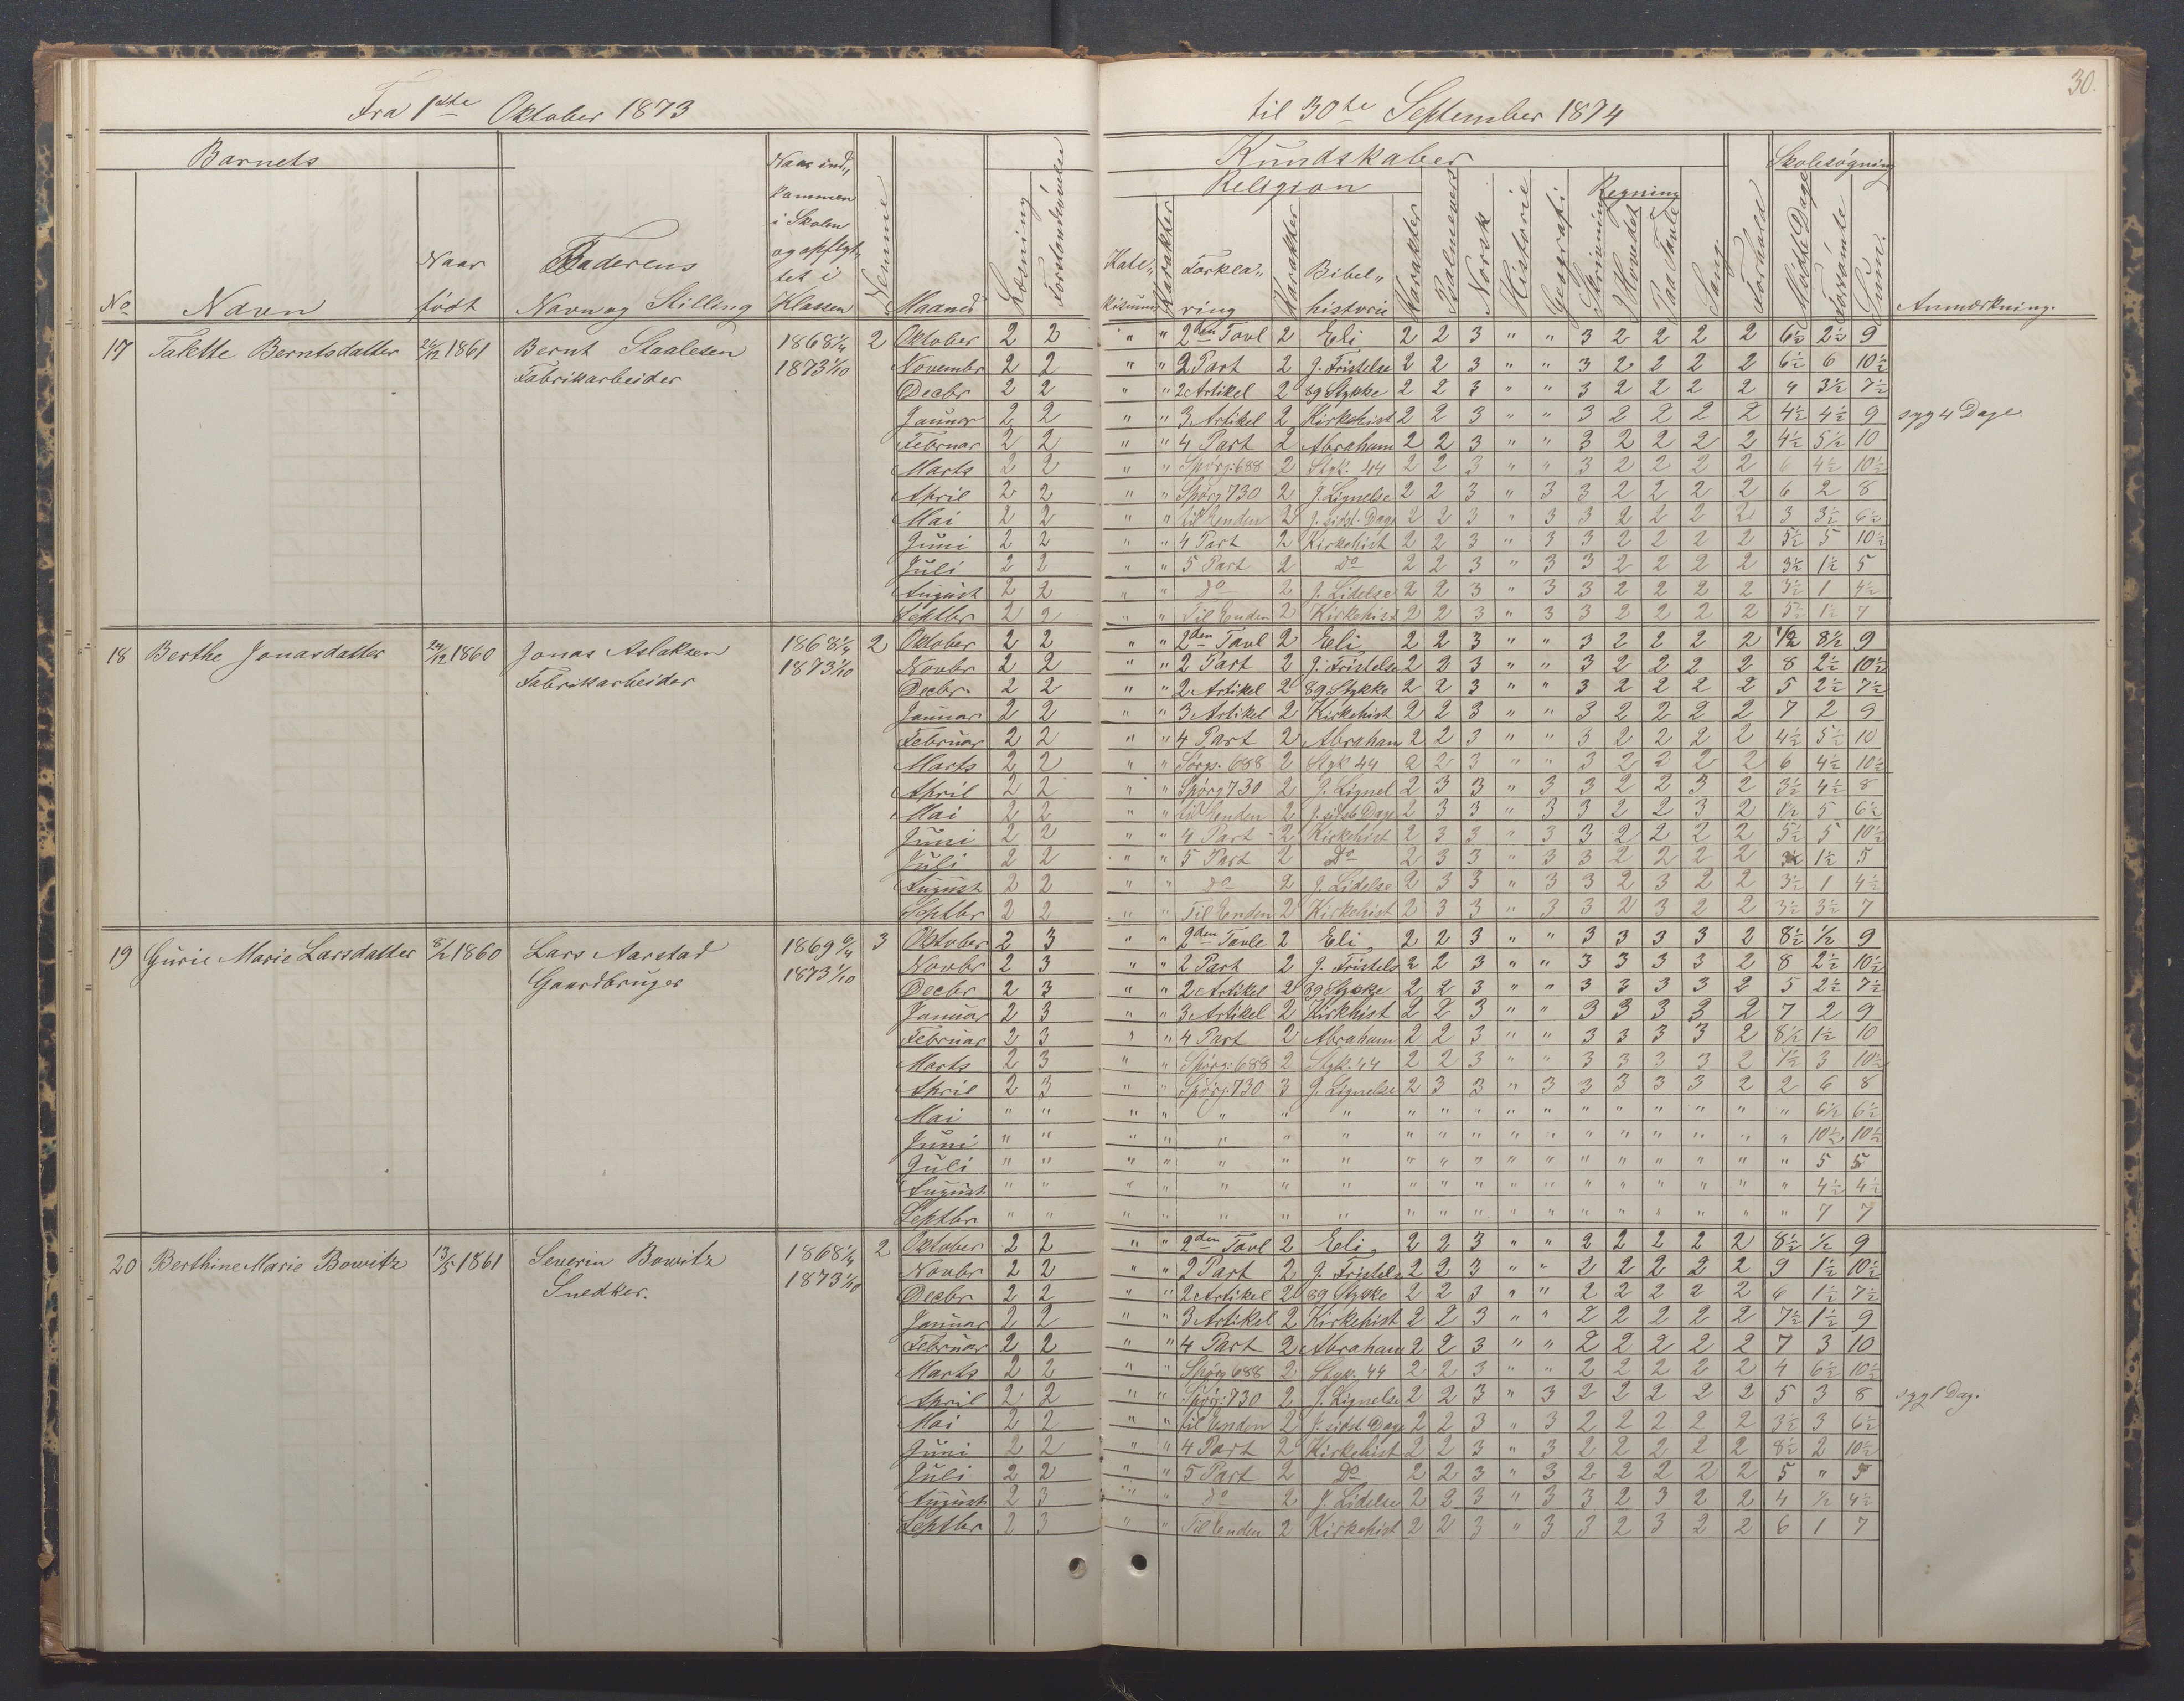 30.
Fra 1ste Oktober 1873 til 30te September 1874
Barnets Kundskaber Skolesøgning
Religion Regning
No Navn Naar født Faderens Navn og Stilling Naar indkommen i Skolen og opflyttet i Klassen Nemme Maaned Læsning Forstandsøvelse Katekismus Karakter Forklaring Karakter Bibelhistorie Karakter Psalmevers Norsk Historie Geografi Skrivning I Hovedet Paa Tavle Sang Forhold Mødte Dage Forsømte Sum Anmærkning.
17 Talette Berntsdatter 1861 Bernt Staalesen 1868 1/4 2 Oktober 2 2 " " 2den Tavl 2 Eli 2 2 3 " " 3 2 2 2 2 6½ 2½ 9
Fabrikarbeider 1873 1/10 Novembr 2 2 " " 2 Part 2 J. Fristelse 2 2 3 " " 3 2 2 2 2 6½ 6 10½
Decbr 2 2 " " 2 Artikel 2 89 Stykke 2 2 3 " " 3 2 2 2 2 4 3½ 7½
Januar 2 2 " " 3 Artikel 2 Kirkehist 2 2 3 " " 3 2 2 2 2 4½ 4½ 9 syg 4 Dage.
Februar 2 2 " " 4 Part 2 Abraham 2 2 3 " " 3 2 2 2 2 4½ 5½ 10
Marts 2 2 " " Spørg: 688 2 Styk. 44 2 2 3 " " 3 2 2 2 2 6 4½ 10½
April 2 2 " " Spørg 730 2 J. Lignelse 2 2 3 " 3 3 2 2 2 2 6 2 8
Mai 2 2 " " til Enden 2 J. sidst. Dage 2 2 3 " 3 3 2 2 2 2 3 3½ 6½
Juni 2 2 " " 4 Part 2 Kirkehist 2 2 3 " 3 3 2 2 2 2 5½ 5 10½
Juli 2 2 " " 5 Part 2 Do 2 2 3 " 3 3 2 2 2 2 3½ 1½ 5
August 2 2 " " do 2 J. Lidelse 2 2 3 " 3 3 2 2 2 2 3½ 1 4½
Septbr 2 2 " " Til Enden 2 Kirkehist 2 2 3 " 3 3 2 2 2 2 5½ 1½ 7
18 Berthe Jonasdatter 1860 Jonas Aslaksen 1868 1/4 2 Oktober 2 2 " " 2den Tavl 2 Eli 2 2 3 " " 3 2 2 2 2 ½ 8½ 9
Fabrikarbeider 1873 1/10 Novbr 2 2 " " 2 Part 2 J. Fristelse 2 2 3 " " 3 2 2 2 2 8 2½ 10½
Decbr. 2 2 " " 2 Artikel 2 89 Stykke 2 2 3 " " 3 2 2 2 2 5 2½ 7½
Januar 2 2 " " 3 Artikel 2 Kirkehist 2 2 3 " " 3 2 2 2 2 7 2 9
Februar 2 2 " " 4 Part 2 Abraham 2 2 3 " " 3 2 2 2 2 4½ 5½ 10
Marts 2 2 " " Sørg. 688 2 Styk 44 2 2 3 " " 3 2 2 2 2 6 4½ 10½
April 2 2 " " Spørg 730 2 J. Lignel 2 3 3 " 3 3 2 2 3 2 3½ 4½ 8
Mai 2 2 " " til Enden 2 J. sidste Dage 2 3 3 " 3 3 2 2 3 2 1½ 5 6½
Juni 2 2 " " 4 Part 2 Kirkehist 2 3 3 " 3 3 2 2 2 2 5½ 5 10½
Juli 2 2 " " 5 Part 2 Do 2 3 3 " 3 3 2 2 2 2 3½ 1½ 5
August 2 2 " " do 2 J. Lidelse 2 3 3 " 3 3 2 3 2 2 3½ 1 4½
Septbr 2 2 " " Til Enden 2 Kirkehist 2 3 3 " 3 3 2 3 2 2 3½ 3½ 7
19 Gurie Marie Larsdatter 8/1 1860 Lars Aarstad 1869 6/4 3 Oktober 2 3 " " 2den Tavle 2 Eli 2 2 3 " " 3 3 3 3 2 8½ ½ 9
Gaardbruger 1873 1/10 Novbr 2 3 " " 2 Part 2 J. Fristels 2 2 3 " " 3 3 3 3 2 8 2½ 10½
Decbr 2 3 " " 2 Artikel 2 89 Stykke 2 2 3 " " 3 3 3 3 2 5 2½ 7½
Januar 2 3 " " 3 Artikel 2 Kirkhist 2 2 3 " " 3 3 3 3 2 7 2 9
Februar 2 3 " " 4 Part 2 Abraham 2 2 3 " " 3 3 3 3 2 8½ 1½ 10
Marts 2 3 " " Spørg: 688 2 Styk. 44 2 2 3 " " 3 3 3 3 2 7½ 3 10½
April 2 3 " " Spørg: 730 3 J. Lignelse 2 3 3 " 3 3 3 3 3 2 2 6 8
Mai " " " " " " " " " " " " " " " " " " 6½ 6½
Juni " " " " " " " " " " " " " " " " " " 10½ 10½
Juli " " " " " " " " " " " " " " " " " " 5 5
August " " " " " " " " " " " " " " " " " " 4½ 4½
Septbr " " " " " " " " " " " " " " " " " " 7 7
20 Berthine Marie Bowitz 13/5 1861 Severin Bowitz 1868 1/4 2 Oktober 2 2 " " 2den Tavl 2 Eli 2 2 3 " " 2 2 2 2 2 8½ ½ 9
Snedker. 1873 1/10 Novbr 2 2 " " 2 Part 2 J. Fristels 2 2 3 " " 2 2 2 2 2 9 1½ 10½
Decbr 2 2 " " 2 Artikel 2 89 Stykke 2 2 3 " " 2 2 2 2 2 6 1½ 7½
Januar 2 2 " " 3 Artikel 2 Kirkehist 2 2 3 " " 2 2 2 2 2 7½ 1½ 9
Februar 2 2 " " 4 Part 2 Abraham 2 2 3 " " 2 2 2 2 2 7 3 10
Marts 2 2 " " Spørg 688 2 Styk. 44 2 2 3 " " 2 2 2 2 2 4 6½ 10½
April 2 2 " " Spørg: 730 2 J. Lignelse 2 2 3 " 3 2 2 2 2 2 5 3 8 syg 1 Dag.
Mai 2 2 " " til Enden 2 J. sidst. Dage 2 2 3 " 3 2 2 2 2 2 3½ 3 6½
Juni 2 2 " " 4 Part 2 Kirkehist 2 2 3 " 3 2 2 2 2 2 8½ 2 10½
Juli 2 2 " " 5 Part 2 Do 2 2 3 " 3 2 2 2 2 2 5 " 5
August 2 3 " " do 2 J. Lidelse 2 2 3 " 3 3 2 3 2 2 4 ½ 4½
Septbr 2 3 " " Til Enden 2 Kirkehist 2 2 3 " 3 3 2 3 2 2 6 1 7